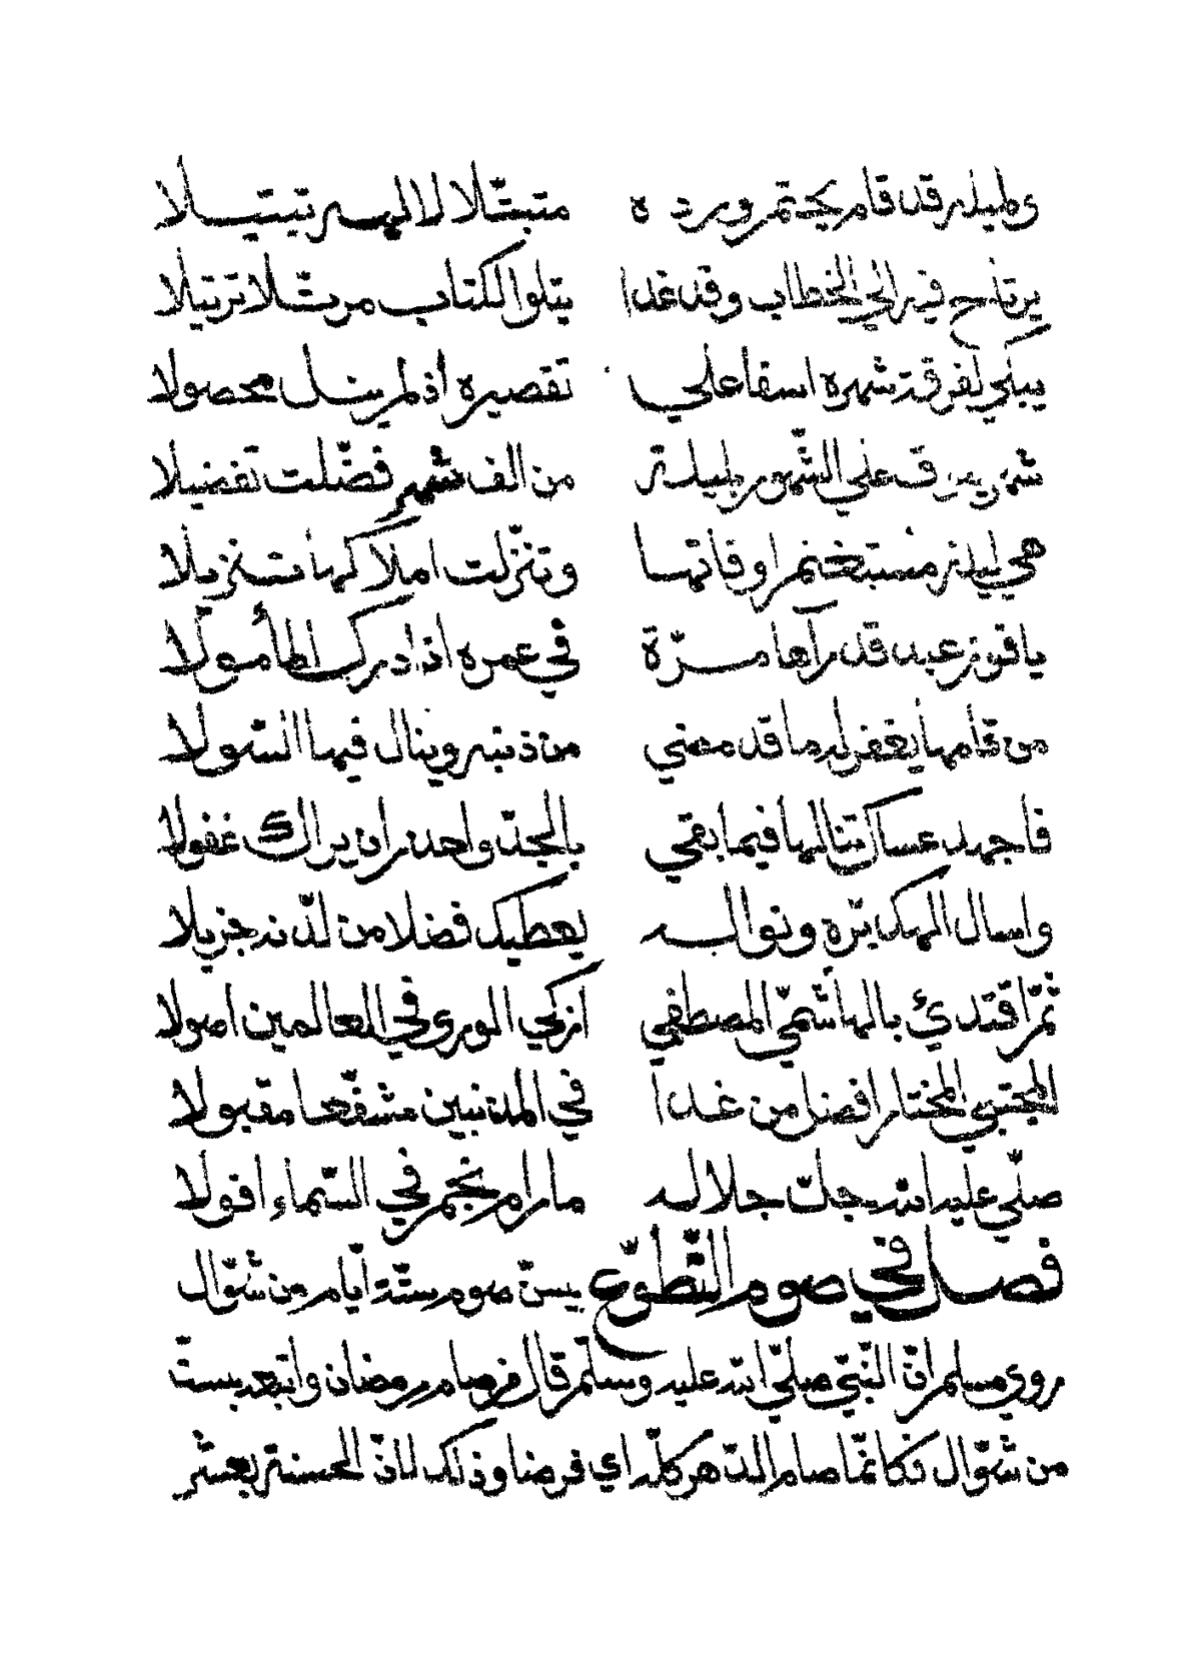 وليله قد قام يختم ورده متبتّلا لالهه تبتيلا
يرتاح فيه الي الخطاب وقد غدا يتلوا لكتاب مرتّلا ترتيلا
يبكي لفرقة شهره اسفا علي تقصيره اذ لم ينل محصولا
شهر يفوق علي الشّهور بليلة من الف شهر فضّلت تفضيلا
هي ليلة مستغنم اوقاتها وتنزّلت املاكها تنزيلا
يا فوز عبد قد رآها مرّة في عمره اذ ادرك المأمولا
من قامها يغفر له ما قد مضي من ذنبه وينال فيها السّولا
فاجهد عساك تنالها فيما بقي بالجدّ واحذر ان يراك غفولا
واسال الهك برّه ونواله يعطيك فضلا من لدّنه جزيلا
ثمّ اقتدي بالهاشمّي المصطفي ازكي الوري في العالمين اصولا
المجتبي المختار افضل من غدا في المذنبين مشفّعا مقبولا
صلّي عليه اللّه جلّ جلاله ما رام نجم في السّماء افولا
فصل في صوم التّطوّع يسنّ صوم ستّة أيّام من شوّال
روي مسلم انّ النّبيّ صلّي اللّه عليه وسلّم قال من صام رمضان واتبعه بستّ
من شوّال فكانّما صام الدّهر كلّه اي فرضا وذلك لانّ الحسنة بعشر